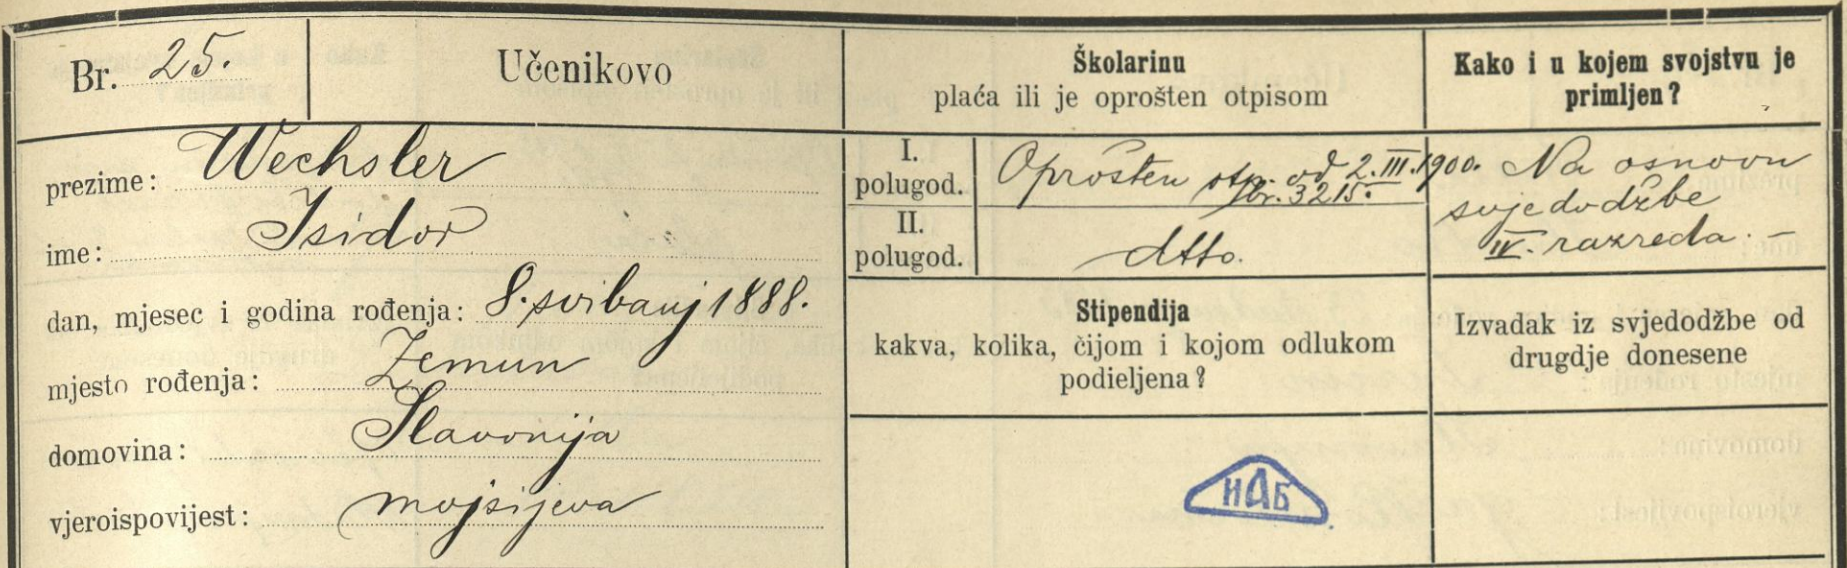 Br. 25.
Učenikovo
prezime: Wechsler
ime: Isidor
dan, mjesec i godina rođenja: 8. svibanj 1888.
mjesto rođenja: Zemun
domovina: Slavonija
vjeroispovijest: mojsijeva
Školarinu
plaća ili je oprošten otpisom
I.
polugod.
Oprošten otp. od 2. III. 1900.
br. 3215.
II.
polugod.
dtto.
Stipendija
kakva, kolika, čijom i kojom odlukom
podieljena?
НАБ
Kako i u kojem svojstvu je
primljen?
Na osnovu
svjedodžbe
IV. razreda. –
Izvadak iz svjedodžbe od
drugdje donesene